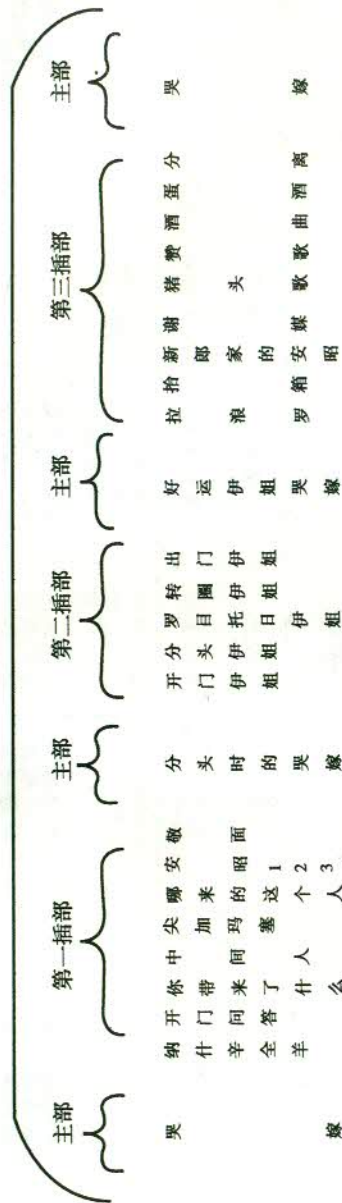 主部
哭嫁
第一插部
纳什辛全羊
开门问答
你带来了什么
中间人
尖加玛塞
哪来的这个人
安昭123
敬面
主部
分头时的哭嫁
第二插部
开门伊姐
分头伊姐
罗目托日伊姐
转圈伊姐
出门伊姐
主部
好运伊姐哭嫁
第三插部
拉浪罗
抬箱
新郎家的安昭
谢媒
猪头歌
赞歌
酒曲
蛋酒
分离
主部
哭嫁